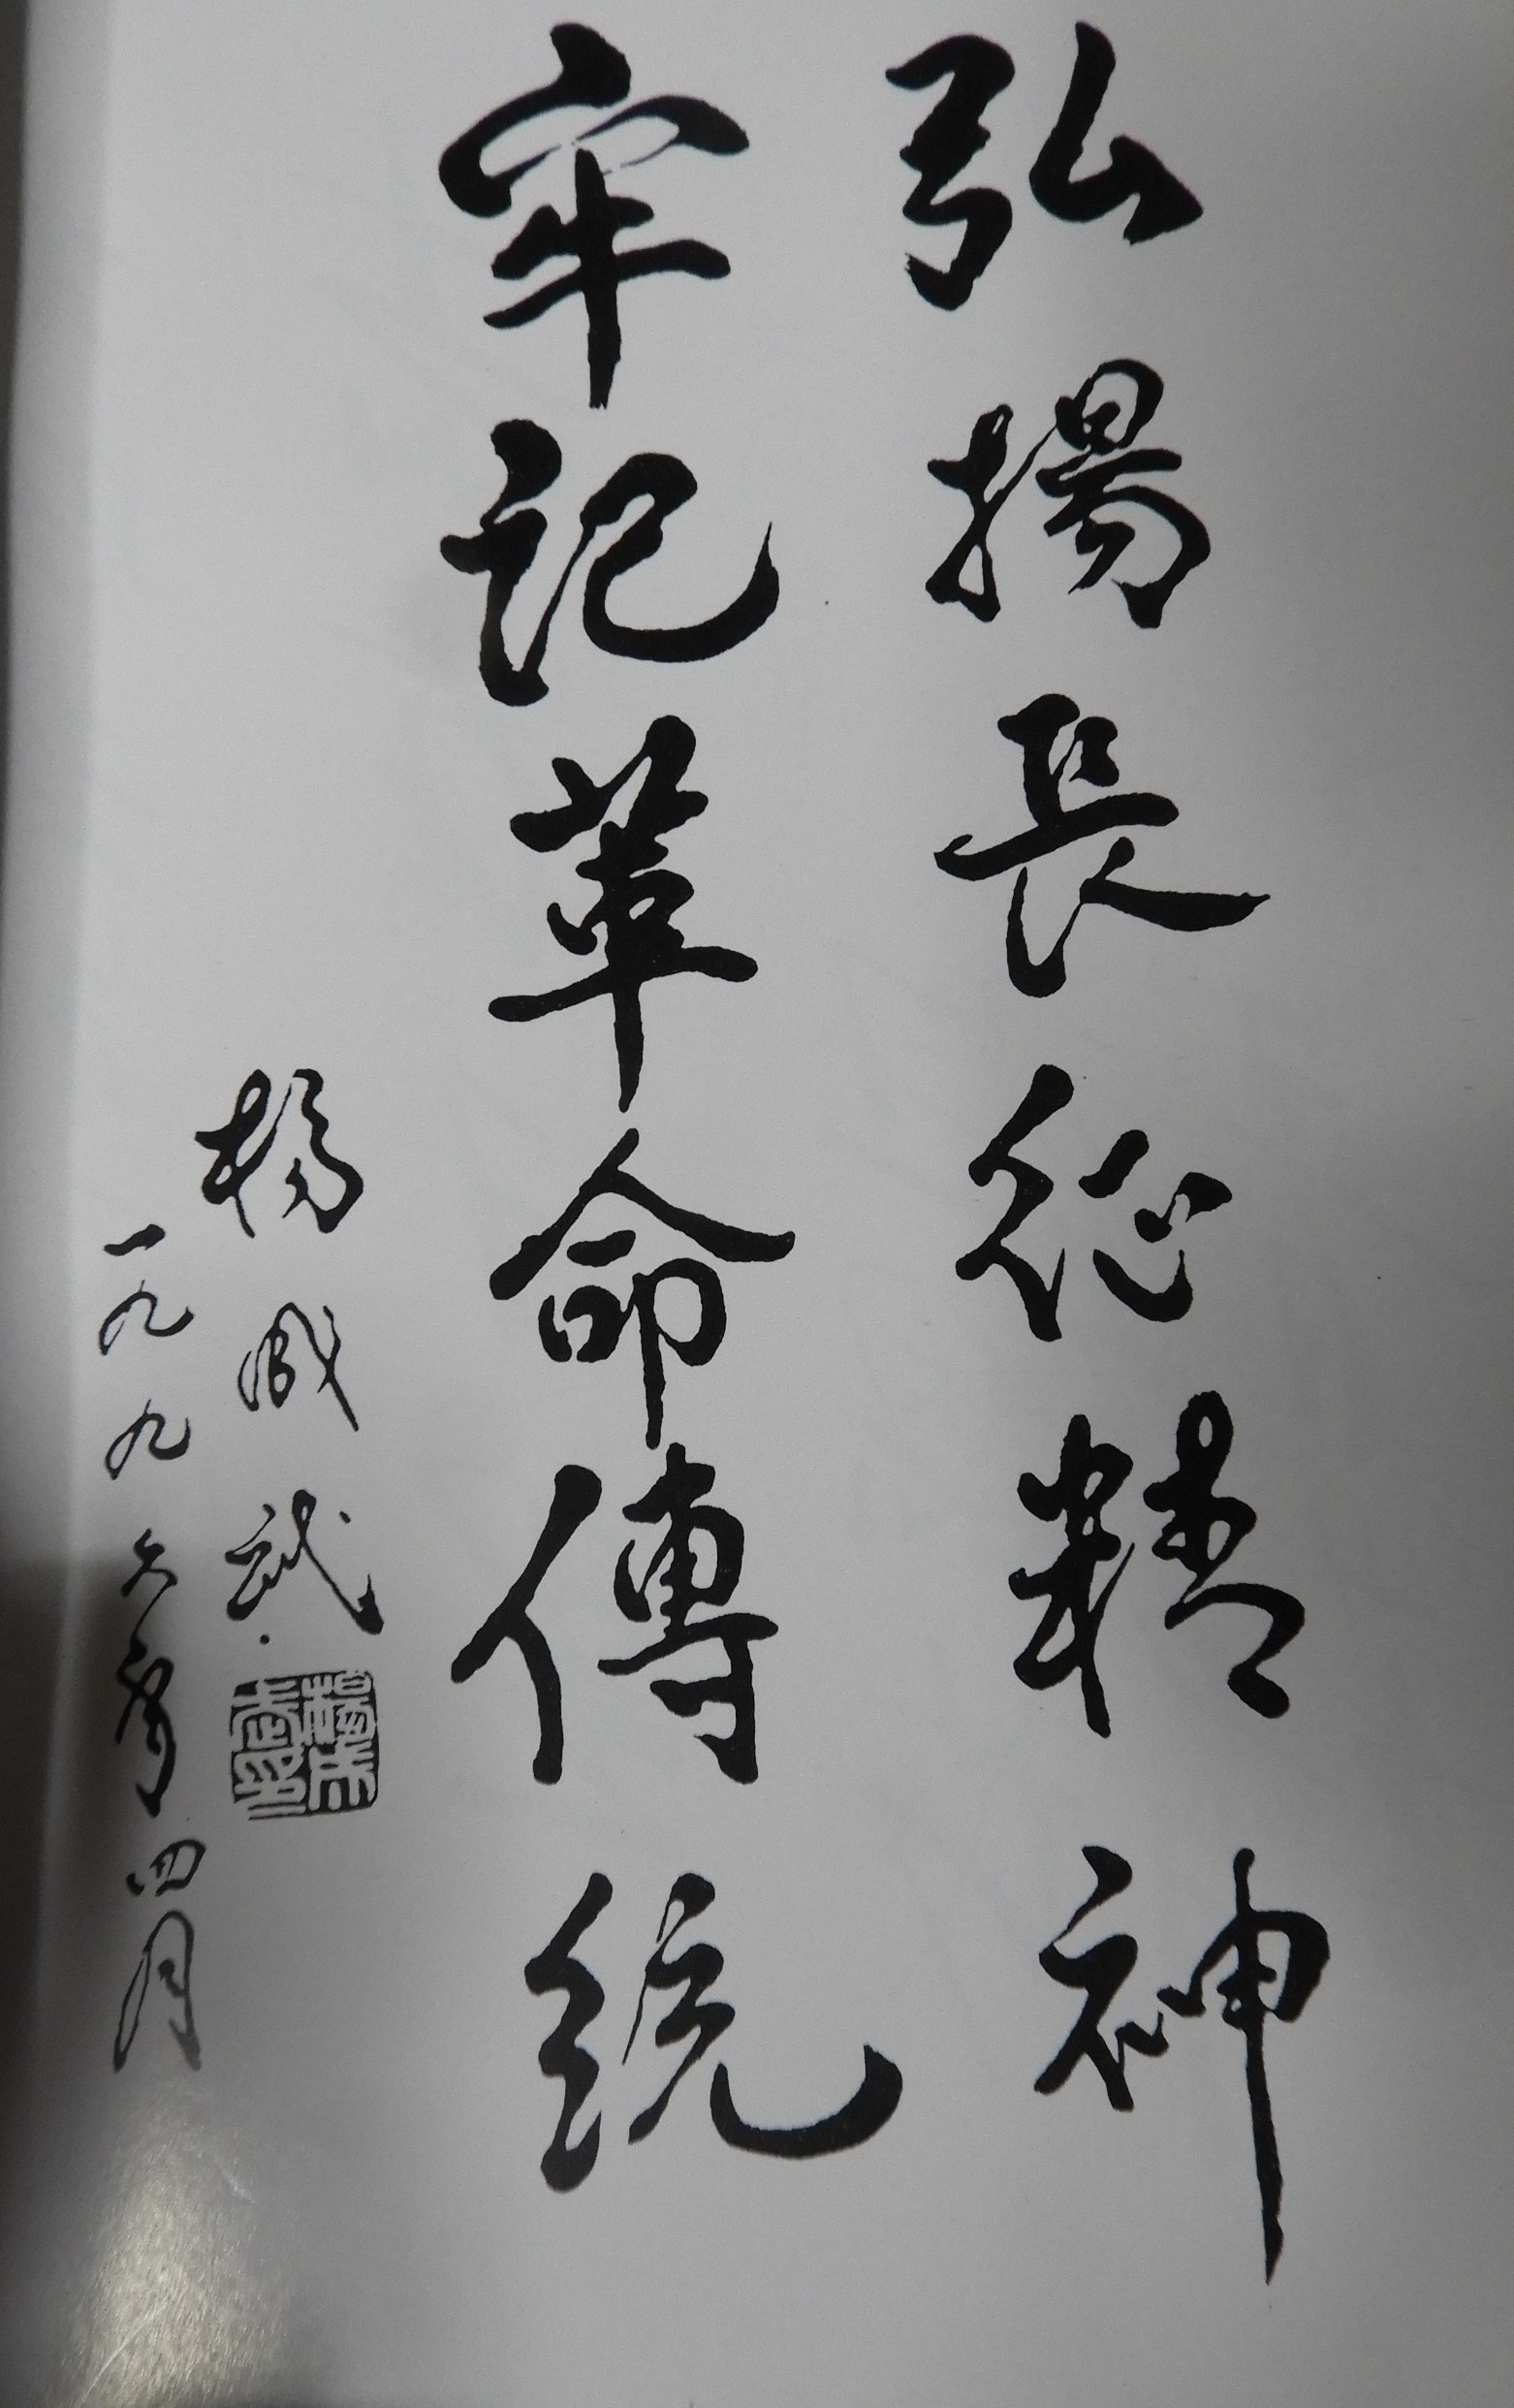 弘揚長征精神
牢記革命傳統
楊成武
一九九六年四月
楊成武印